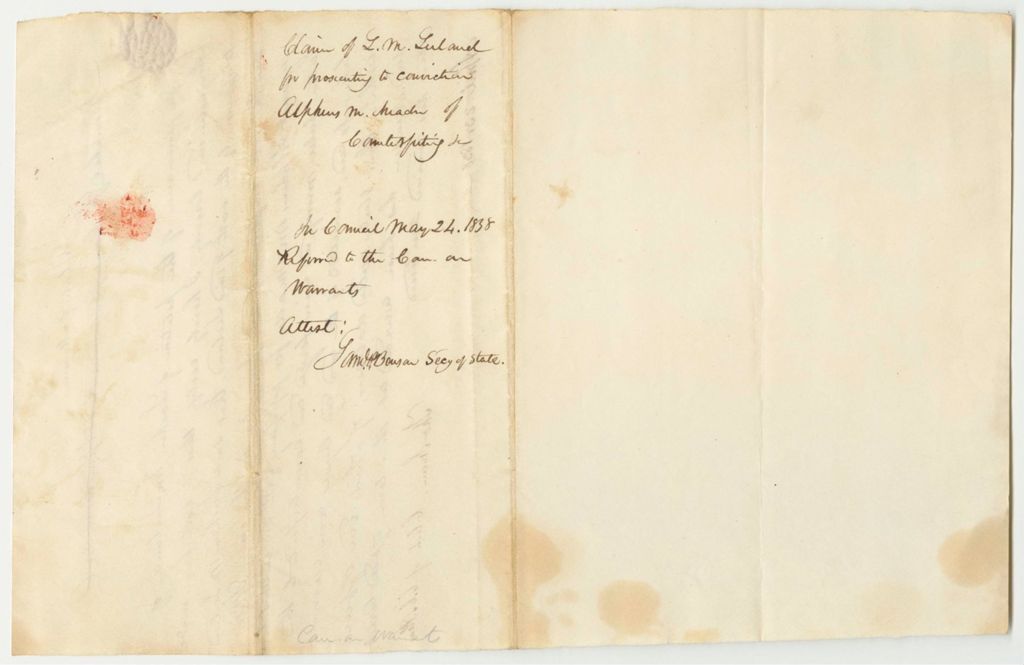 Claim of L. M. Leland
for prosecuting to conviction
Alpheus M. Meader of
Counterfiting &c
In Council May 24. 1838
Referred to the Com. on
Warrants
Attest:
Saml P Benson Secy of State.
Com on